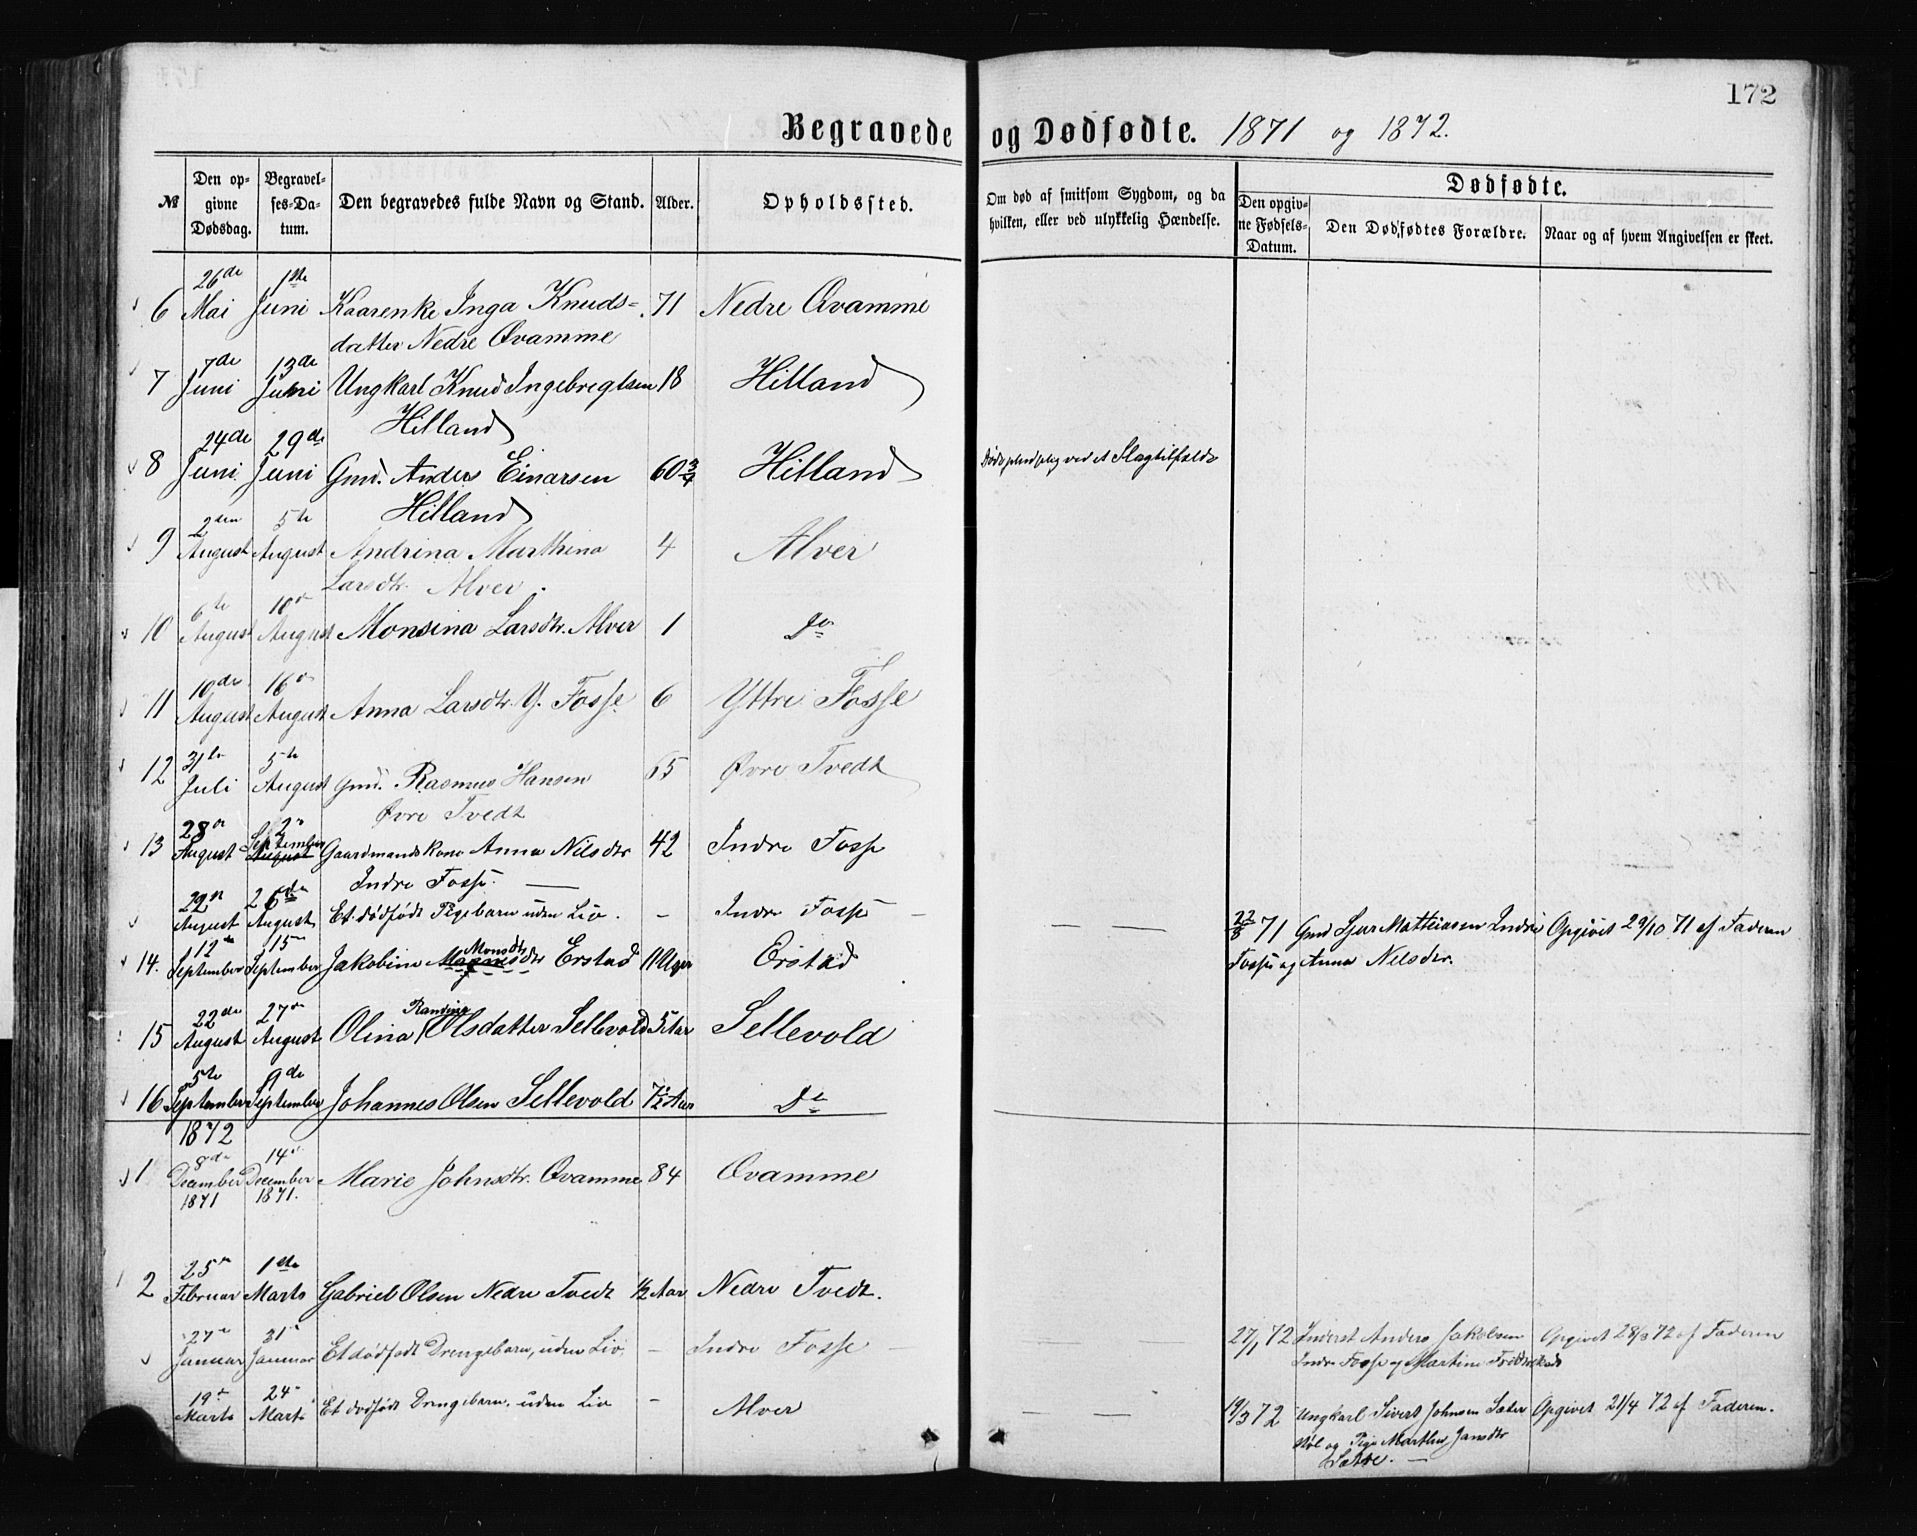 172
Begravede og Dødfødte. 1871 og 1872.
№ Den opgivne Dødsdag. Begravelses-Datum. Den begravedes fulde Navn og Stand. Alder. Opholdssted. Om død af smitsom Sygdom, og da hvilken, eller ved ulykkelig Hændelse. Dødfødte.
Den opgivne Fødsels-Datum. Den Dødfødtes Forældre. Naar og af hvem Angivelsen er skeet.
26de 1ste
6 Mai Juni Kaarenke Inga Knuds- 71 Nedre Qvamme
datter Nedre Qvamme
7de 13de
7 Juni Juni Ungkarl Knud Ingebregtsen 18 Hilland
Hilland
24de 29de
8 Juni Juni Gmd. Anders Einarsen 60 3/4 Hilland ved et Slagtilfælde
Hilland
2den 5te
9 August August Andrina Marthina 4 Alver
Larsdtr. Alver.
6te 10de
10 August August Monsina Larsdtr. Alver 1 Do
10de 16de
11 August August Anna Larsdtr. Y. Fosse 6 Yttre Fosse
31te 5te
12 Juli August Gmd. Rasmus Hansen 65 Øvre Tvedt
Øvre Tvedt
28de 2de
13 August September August Gaardmandskone Anna Nilsdtr 42 Indre Fosse
Indre Fosse.
22de 26de
August August Et dødfødt Pigebarn uden Liv. — Indre Fosse — — — 22/8 71 Gmd Sjur Mathiassen Indre Opgivet 29/10 71 af Faderen
Fosse og Anna Nilsdtr.
12te 15de
14. September September Jakobine Monsdtr Erstad 11 Uger Erstad
22de 27de Randine
15 August August Olina Olsdatter Sellevold 5 Aar Sellevold
5te 9de
16 September September Johannes Olsen Sellevold 7 1/2 Aar Do
1872
8de 14de
1 December December Marie Johnsdtr. Qvamme 84 Qvamme
1871 1871.
25de 1ste
2 Februar Marts Gabriel Olsen Nedre Tvedt 1/2 Aar Nedre Tvedt.
27de 31te
Januar Januar Et dødfødt Drengebarn, uden Liv. — Indre Fosse — — — 27/1 72 Inderst Anders Jakobsen Opgivet 28/3 72 af Faderen
Indre Fosse og Martine
19de 24de
Marts Marts Et dødfødt Drengebarn, uden Liv — Alver — — 19/3 72 Ungkarl Sivert Johnsen Sæter Opgivet 21/4 72 af Faderen.
støl og Pige Marthe Jansdtr
Sætre. —